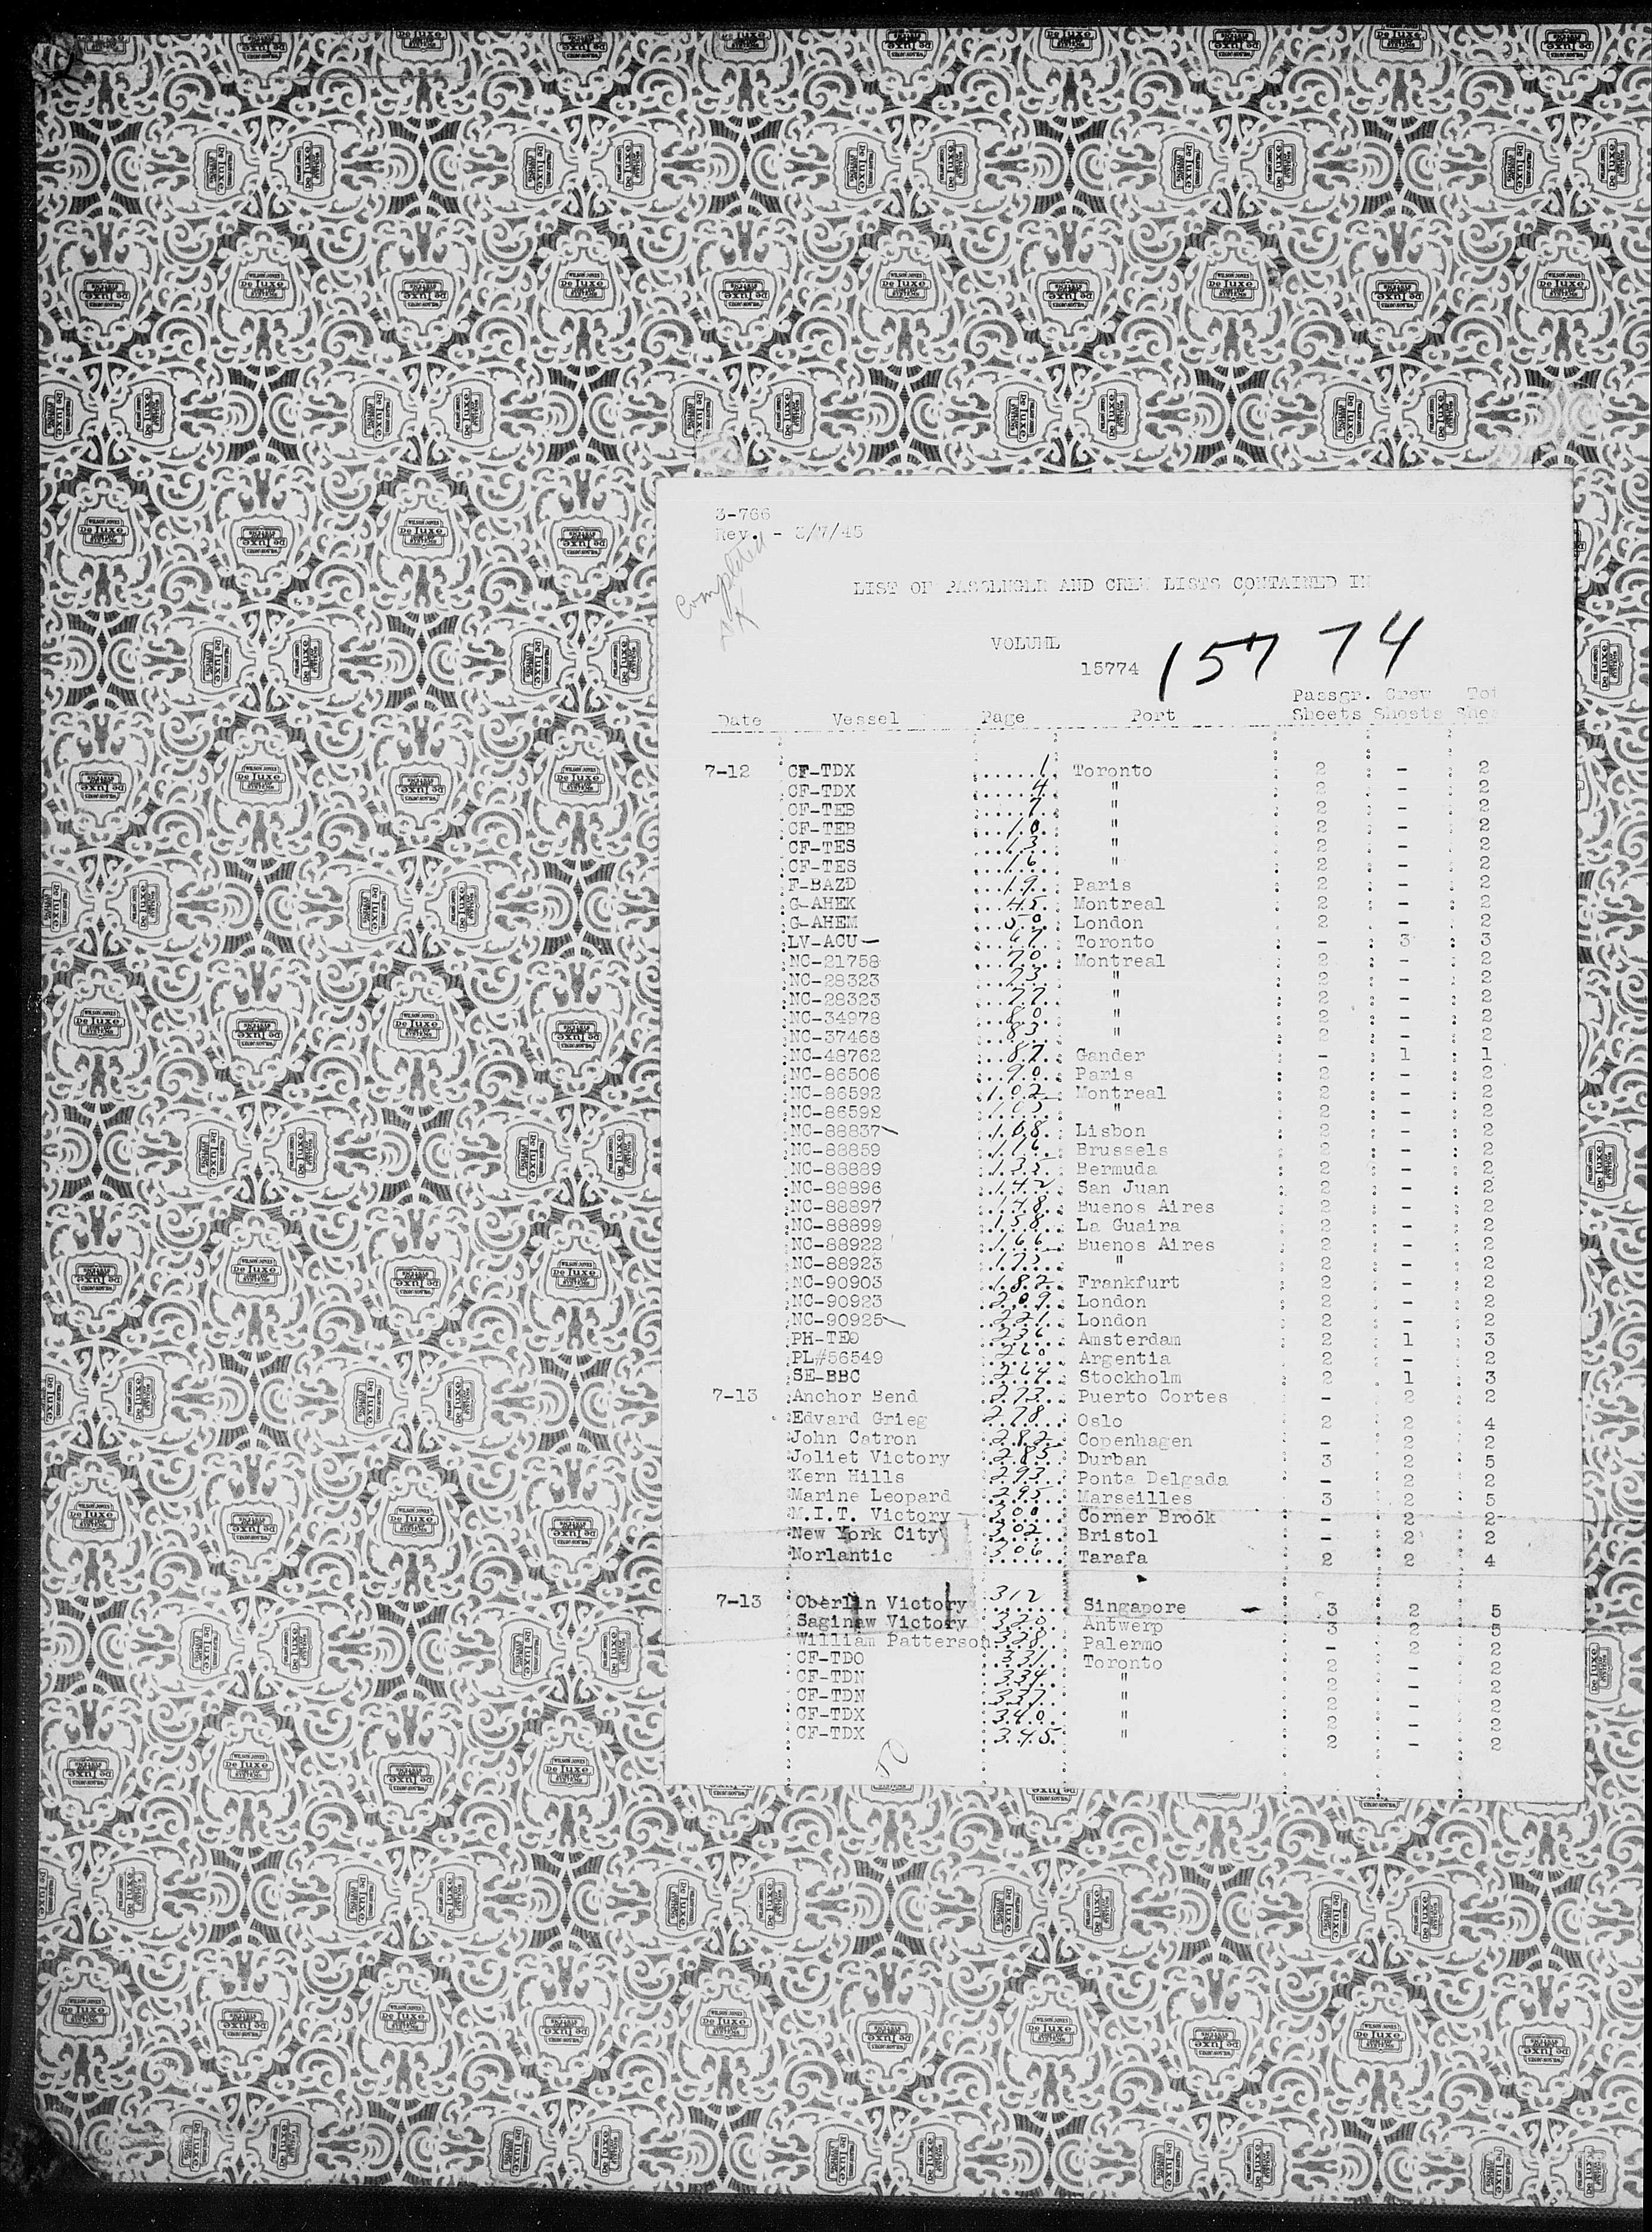 3-766
Rev. - 3/7/45
Completed
LIST OF PASSENGER AND CREW LISTS CONTAINED IN
VOLUME
15774 15774
Passgr. Crew Tot
Date Vessel Page Port Sheets Sheets Shee
7-12 CF-TDX 1 Toronto 2 - 2
CF-TDX 4 " 2 - 2
CF-TEB 7 " 2 - 2
CF-TEB 10 " 2 - 2
CF-TES 13 " 2 - 2
CF-TES 16 " 2 - 2
F-BAZD 19 Paris 2 - 2
G-AHEK 45 Montreal 2 - 2
G-AHEM 50 London 2 - 2
LV-ACU- 67 Toronto - 3 3
NC-21758 70 Montreal 2 - 2
NC-28323 73 " 2 - 2
NC-28323 77 " 2 - 2
NC-34978 80 " 2 - 2
NC-37468 83 " 2 - 2
NC-48762 87 Gander - 1 1
NC-86506 90 Paris 2 - 2
NC-86592 102 Montreal 2 - 2
NC-86592 105 " 2 - 2
NC-88837 108 Lisbon 2 - 2
NC-88859 116 Brussels 2 - 2
NC-88889 132 Bermuda 2 - 2
NC-88896 142 San Juan 2 - 2
NC-88897 148 Buenos Aires 2 - 2
NC-88899 158 La Guaira 2 - 2
NC-88922 166 Buenos Aires 2 - 2
NC-88923 175 " 2 - 2
NC-90903 182 Frankfurt 2 - 2
NC-90923 209 London 2 - 2
NC-90925 221 London 2 - 2
PH-TEO 236 Amsterdam 2 1 3
PL#56549 Argentia 2 - 2
SE-BBC 264 Stockholm 2 1 3
7-13 Anchor Bend 273 Puerto Cortes - 2 2
Edvard Grieg 278 Oslo 2 2 4
John Catron 282 Copenhagen - 2 2
Joliet Victory 285 Durban 3 2 5
Kern Hills 293 Ponta Delgada - 2 2
Marine Leopard 295 Marseilles 3 2 5
M.I.T. Victory 300 Corner Brook - 2 2
New York City 302 Bristol - 2 2
Norlantic 306 Tarafa 2 2 4
7-13 Oberlin Victory 312 Singapore - 3 2 5
Saginaw Victory 320 Antwerp 3 2 5
William Patterson 328 Palermo - 2 2
CF-TDO 331 Toronto 2 - 2
CF-TDN 334 " 2 - 2
CF-TDN 337 " 2 - 2
CF-TDX 340 " 2 - 2
CF-TDX 345 " 2 - 2
50
WILSON JONES
De Luxe